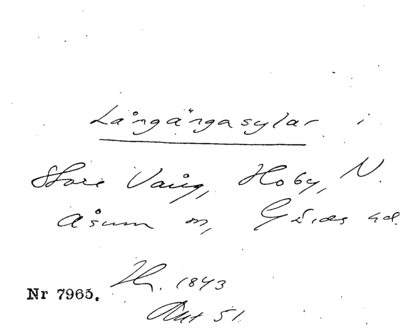 Långängasylar i
Store Vång, Hoby, N.
Åsum sn, Gärds hd.
H. 1843
Akt 51.
Nr 7965.